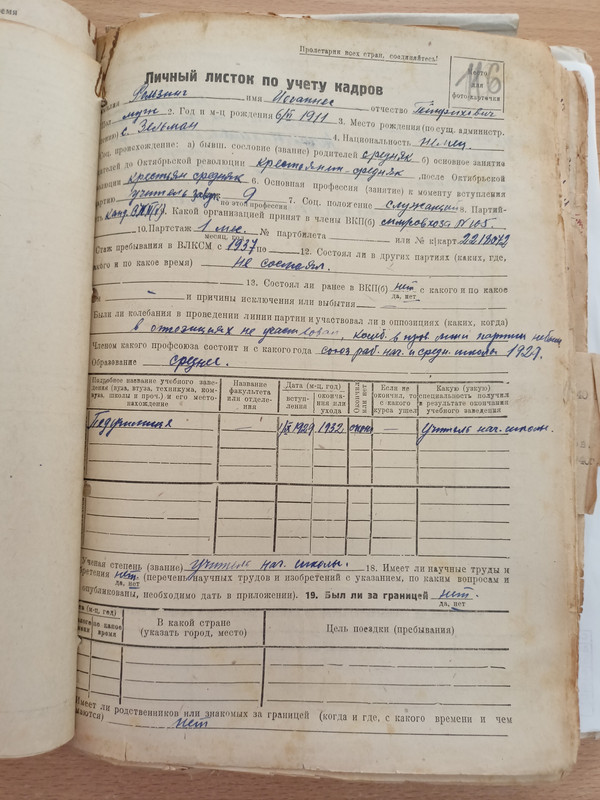 ремя
Пролетарии всех стран, соединяйтесь!
116
Место для фотокарточки
Личный листок по учету кадров
имя Иоганнес отчество
Пол муж 2. Год и м-ц рождения 6/II 1911 3. Место рождения (по сущ. администр.
с. Зельман 4. Национальность Немец
Соц. происхождение: а) бывш. сословие (звание) родителей средняк б) основное занятие
родителей до Октябрьской революции крестьянин-средняк, после Октябрьской
революции крестьян средняк 6. Основная профессия (занятие) к моменту вступления
партию учитель завуч по этой профессии 9 7. Соц. положение служащий 8. Партий-
канд. ВКП(б) 9. Какой организацией принят в члены ВКП(б)
10. Партстаж 1 мес. № партбилета или № к/карт.
месяц, год
Стаж пребывания в ВЛКСМ с 1937 по 12. Состоял ли в других партиях (каких, где,
какого и по какое время) Не состоял.
13. Состоял ли ранее в ВКП(б) нет с какого и по какое
да, нет
и причины исключения или выбытия
Были ли колебания в проведении линии партии и участвовал ли в оппозициях (каких, когда)
в оппозициях не участвовал, колеб. в пров. линии партии небыло
Членом какого профсоюза состоит и с какого года союз раб. нач. и средн. школы 1929.
Образование среднее.
Подробное название учебного заведения (вуза, втуза, техникума, комвуза, школы и проч.) и его местонахождение
Название факультета или отделения
Дата (м-ц, год)
вступления
окончания или ухода
Окончил или нет
Если не окончил, то с какого курса ушел
Какую (узкую) специальность получил в результате окончания учебного заведения
— 1/IX 1929 1932 окон — учитель нач. школы.
Ученая степень (звание) учитель нач. школы. 18. Имеет ли научные труды и
изобретения нет. (перечень научных трудов и изобретений с указанием, по каким вопросам и
да, нет
опубликованы, необходимо дать в приложении). 19. Был ли за границей нет.
да, нет
(м-ц, год)
по какое время
В какой стране (указать город, место)
Цель поездки (пребывания)
Имеет ли родственников или знакомых за границей (когда и где, с какого времени и чем
нет